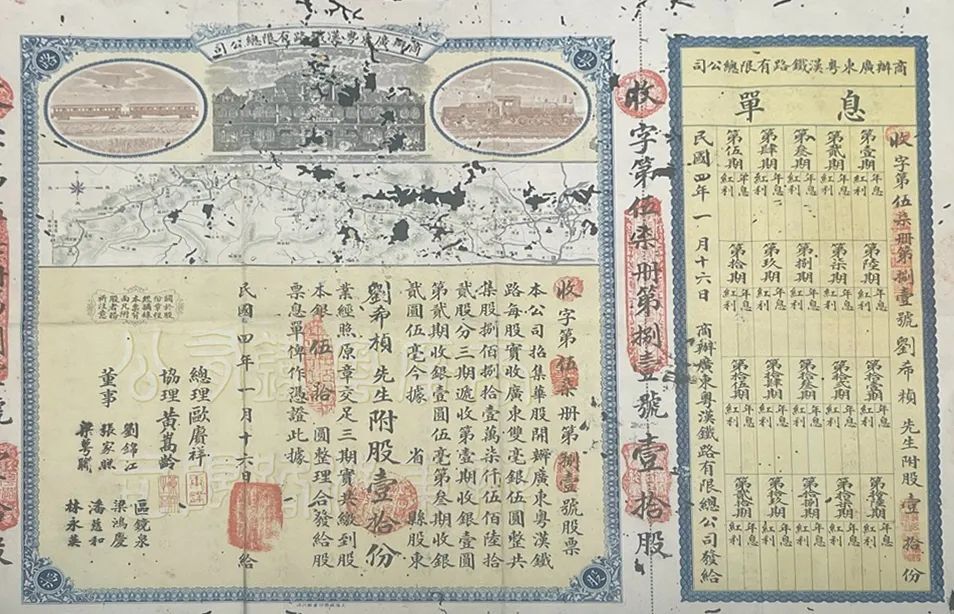 商辦廣東粵漢鐵路有限總公司
收字第伍柒册第捌壹號股票
本公司招集華股開辦廣東粵漢鐵
路每股實收廣東雙毫銀伍圓整共
集股捌佰捌拾壹萬柒仟伍佰陸拾
貳股分三期遞收第壹期收銀壹圓
第貳期收銀壹圓伍毫第叁期收銀
貳圓伍毫今據 省 縣股東
劉希楨先生附股壹拾份
業經照原章交足三期實共繳到股
本銀伍拾圓整理合發給股
票息單俾作憑證此據
民國四年一月十六日 給
總理歐賡祥
協理黃嵩齡
董事
劉錦江
張家照
梁粵
區鏡泉
梁鴻慶
潘慈和
林永英
收字第伍柒册第捌壹號壹拾股
商辦廣東粵漢鐵路有限總公司
息單
收字第伍柒册第捌壹號劉希楨先生附股壹拾份
第壹期 年息 紅利
第貳期 年息 紅利
第叁期 年息 紅利
第肆期 年息 紅利
第伍期 年息 紅利
第陸期 年息 紅利
第柒期 年息 紅利
第捌期 年息 紅利
第玖期 年息 紅利
第拾期 年息 紅利
第拾壹期 年息 紅利
第拾貳期 年息 紅利
第拾叁期 年息 紅利
第拾肆期 年息 紅利
第拾伍期 年息 紅利
第拾陸期 年息 紅利
第拾柒期 年息 紅利
第拾捌期 年息 紅利
第拾玖期 年息 紅利
第貳拾期 年息 紅利
民國四年一月十六日 商辦廣東粵漢鐵路有限總公司發給